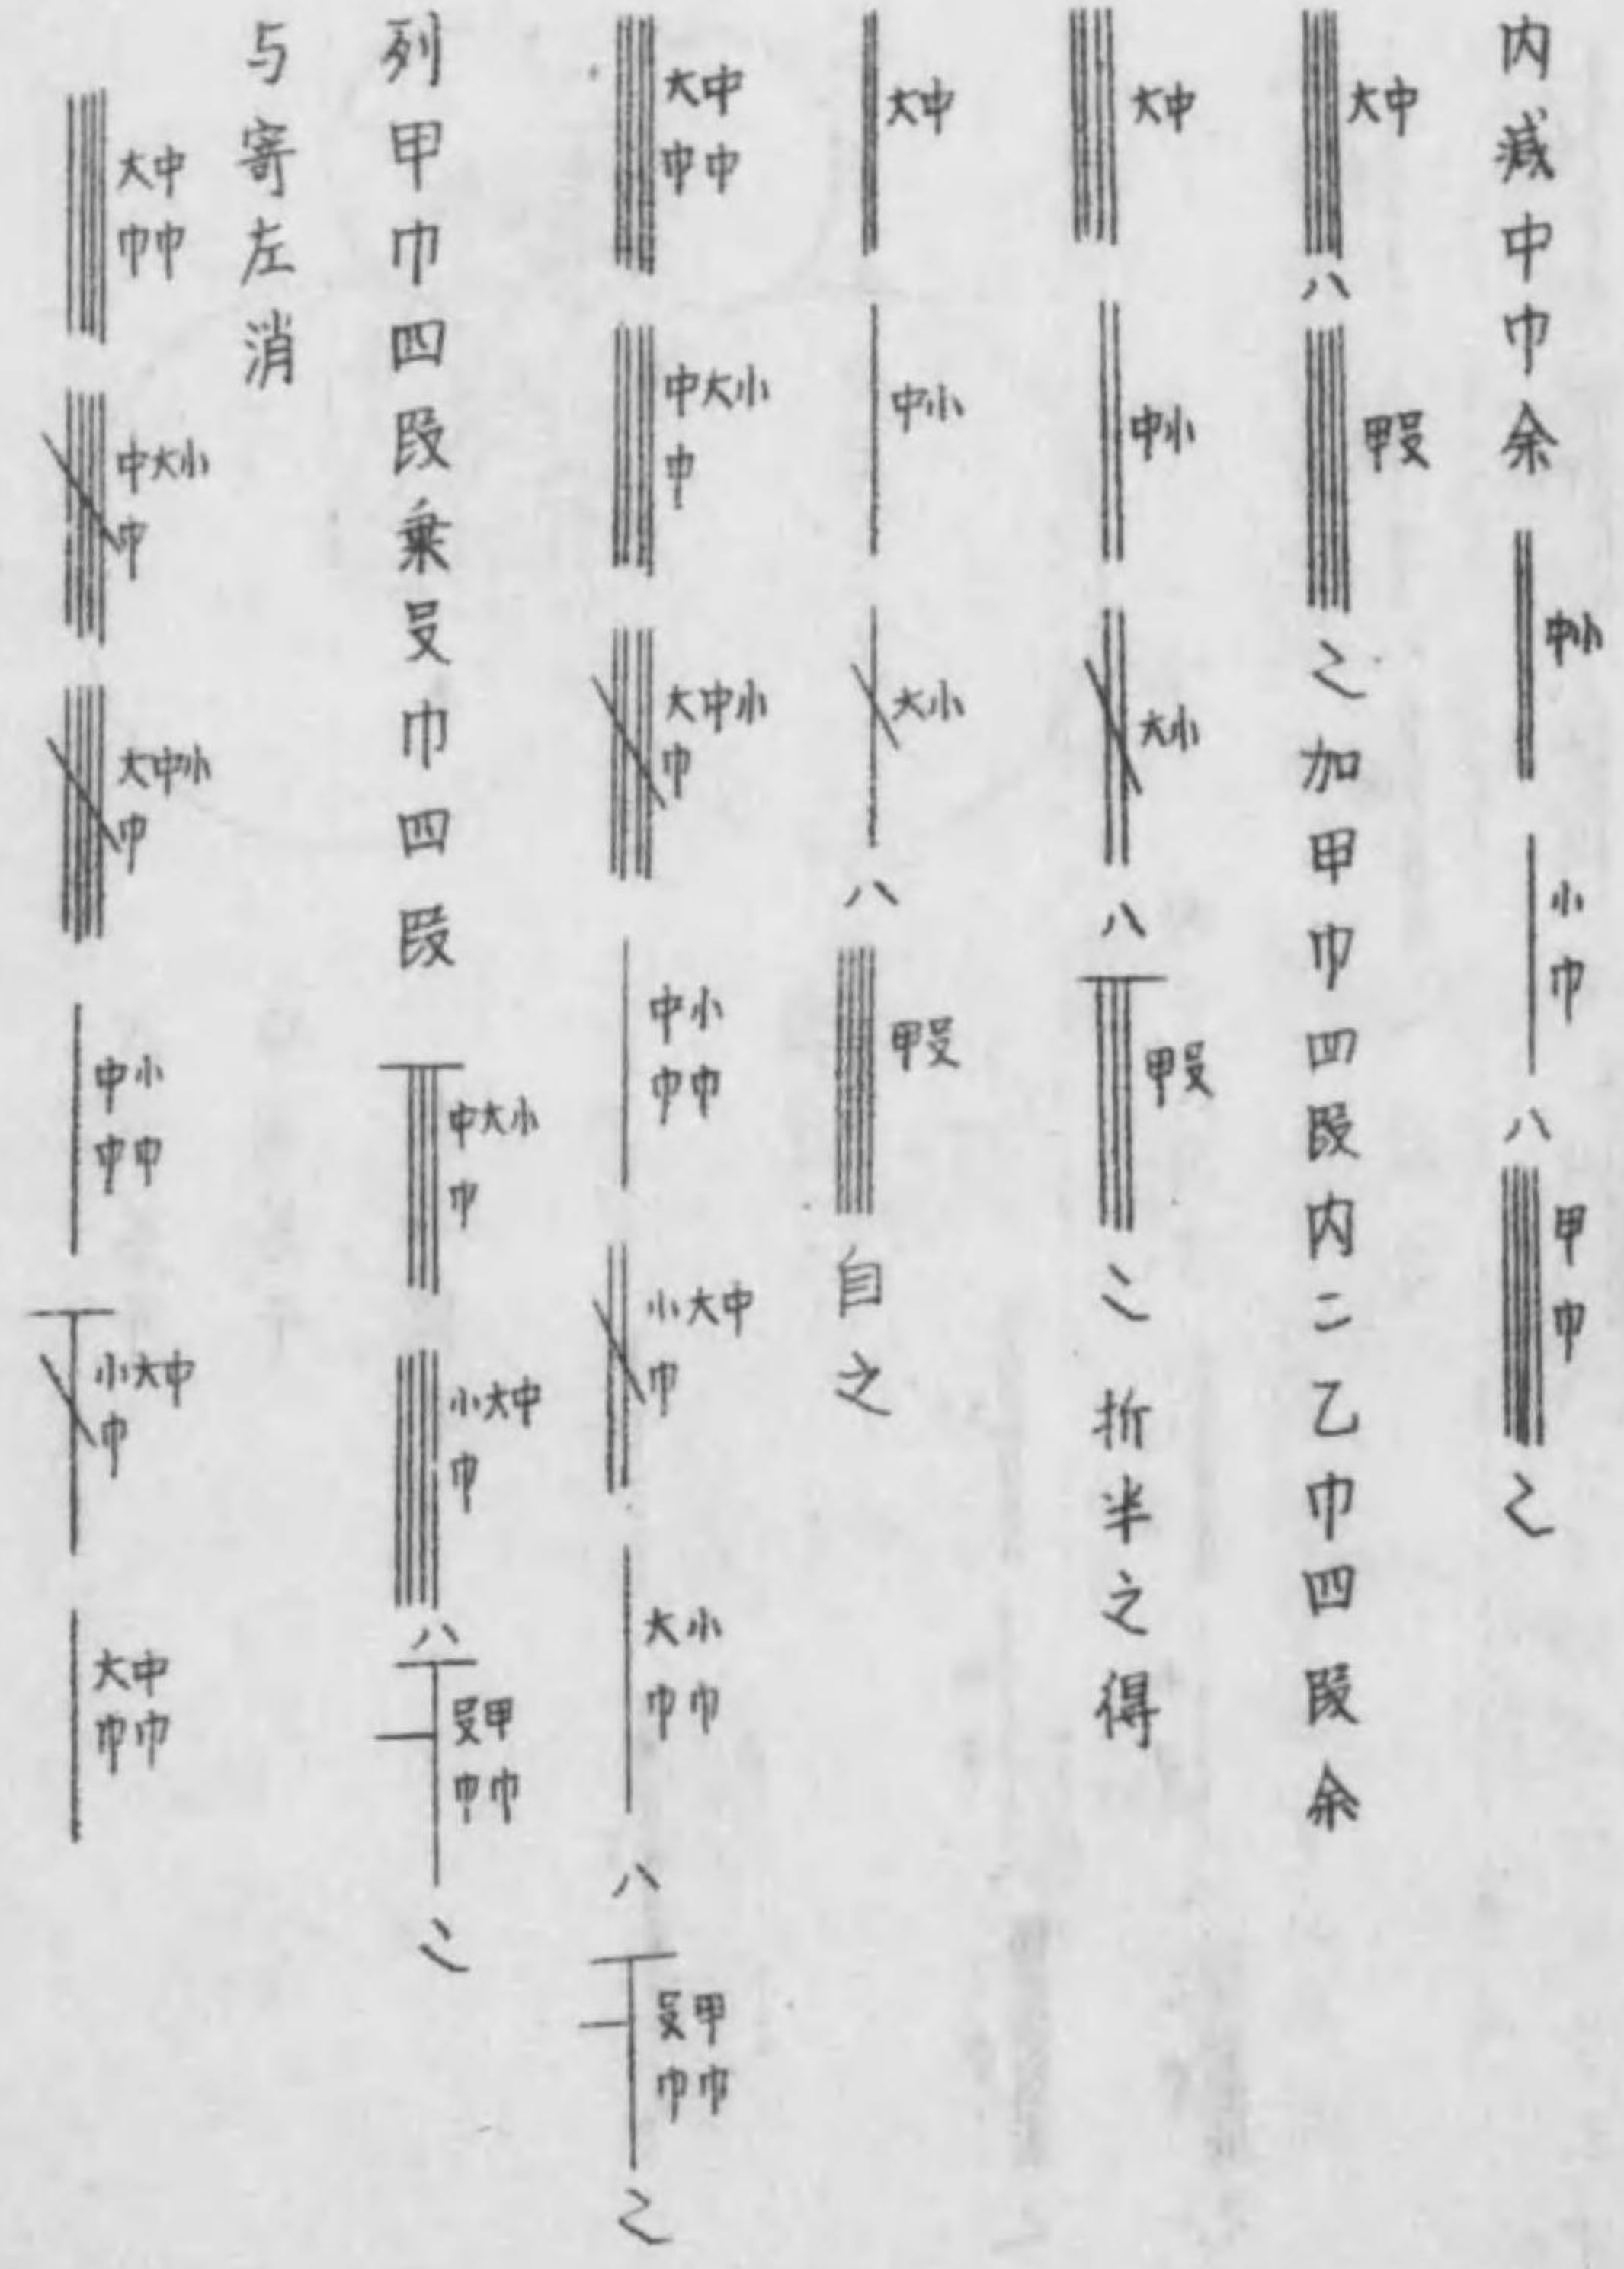 内減中巾余 || 中小 | 小巾 八 |||| 甲巾 之
|||| 大中 八 |||| 甲叐 之 加甲巾四段内二乙巾四段余
|||| 大中 || 中小 || 大小 八 甲叐 之 折半之得
|| 大中 | 中小 | 大小 八 |||| 甲叐 自之
|||| 大中巾巾 |||| 中大小巾 |||| 大中小巾 | 中小巾巾 || 小大中巾 | 大小巾巾 八 叐甲巾巾 之
列甲巾四段乗叐巾四段 中大小巾 |||| 小大中巾 八 叐甲巾巾 之
与寄左消
|||| 大中巾巾 |||| 中大小巾 |||| 大中小巾 | 中小巾巾 小大中巾 | 大中巾巾